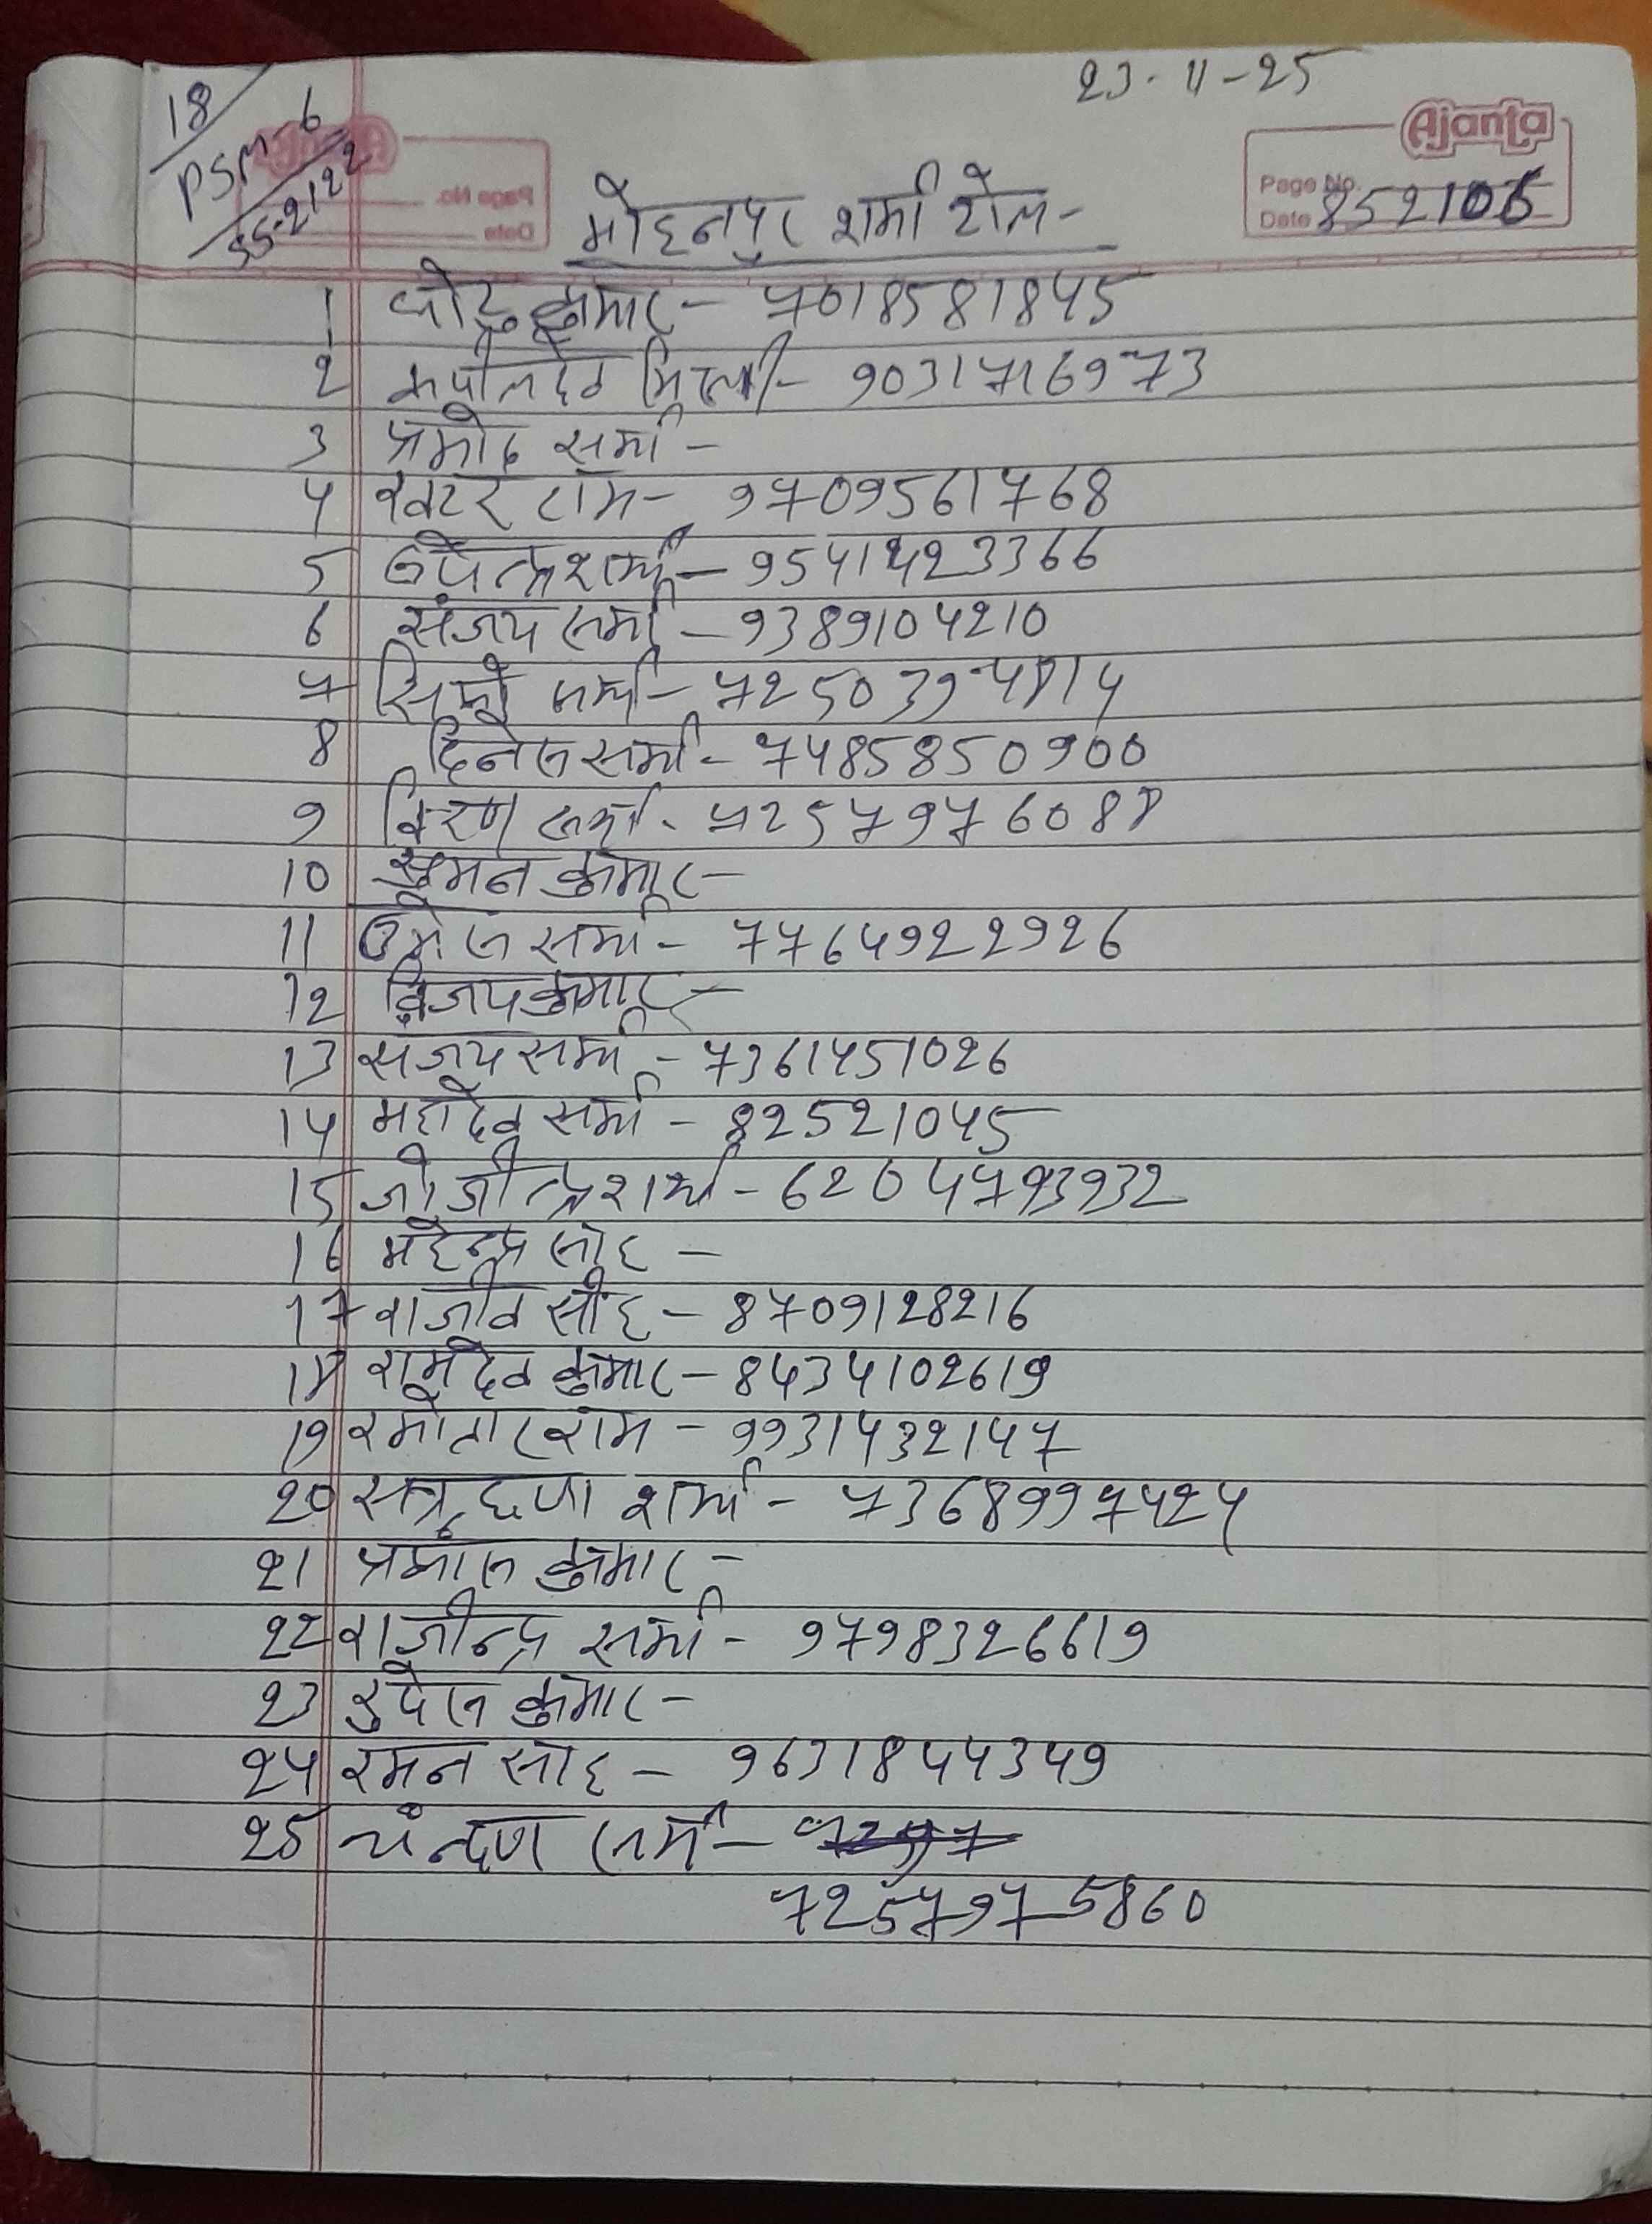 23-11-25
18
PSM-6
SS-2122
Ajanta
Page No.
Date 852106
मोहनपुर शर्मा टोल-
1 छोटु कुमार - 7018581845
2 कपीलदेव मिस्त्री - 9031716973
3 प्रमोद सर्मा -
4 राम - 9709561768
5 उपेन्द्र शर्मा - 9541423366
6 संजय सर्मा - 9389104210
7 सर्मा - 7250394814
8 दिनेस सर्मा - 7485850900
9 किरण सर्मा - 7257976088
10 सुमन कुमार -
11 उमेस सर्मा - 7764922926
12 विजय कुमार -
13 संजय सर्मा - 7361451026
14 महादेव सर्मा - 82521045
15 जोजीन्द्र शर्मा - 6204793932
16 महेन्द्र साह -
17 राजीव साह - 8709128216
18 रामदेव कुमार - 8434102619
19 रमोतार राम - 9931432147
20 सत्रुधण शर्मा - 7368997424
21 प्रकास कुमार -
22 राजीन्द्र सर्मा - 9798326619
23 रुपेस कुमार -
24 रमन साह - 9631844349
25 चंन्दण सर्मा -
7257975860